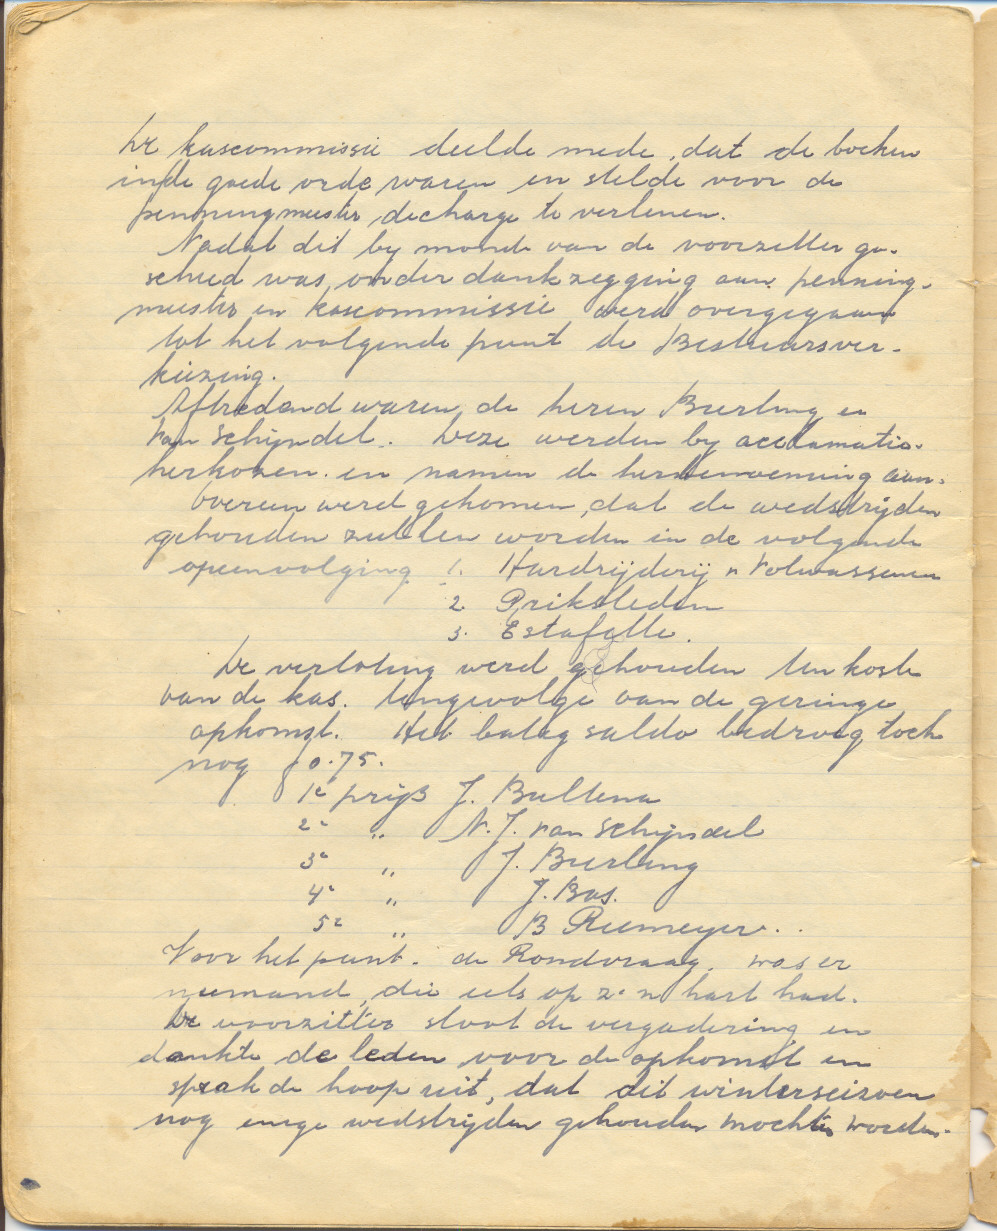 De kascommissie deelde mede, dat de boeken
in de goede orde waren en stelde voor de
penningmeester decharge te verlenen.
Nadat dit by monde van de voorzitter ge-
schied was, onder dankzegging aan penning-
meester en kascommissie werd overgegaan
tot het volgende punt de Bestuursver-
kiezing.
Aftredend waren de heren Bierling en
van Schijndel. Deze werden by acclamatie
herkozen en namen de herbenoeming aan.
Overeen werd gekomen, dat de wedstrijden
gehouden zullen worden in de volgende
opeenvolging 1. Hardrijderij v Volwassenen
2. Priksleden
3. Estafette.
De verloting werd gehouden ten koste
van de kas. tengevolge van de geringe
opkomst. Het batig saldo bedroeg toch
nog f 0.75.
1e prijs J. Bultena
2e " N. J. van Schijndel
3e " J. Bierling
4e " J. Bos.
5e " B Riemeyer.
Voor het punt de Rondvraag, was er
niemand, die iets op z'n hart had.
De voorzitter sloot de vergadering en
dankte de leden voor de opkomst en
sprak de hoop uit, dat dit winterseizoen
nog enige wedstrijden gehouden mochten worden.